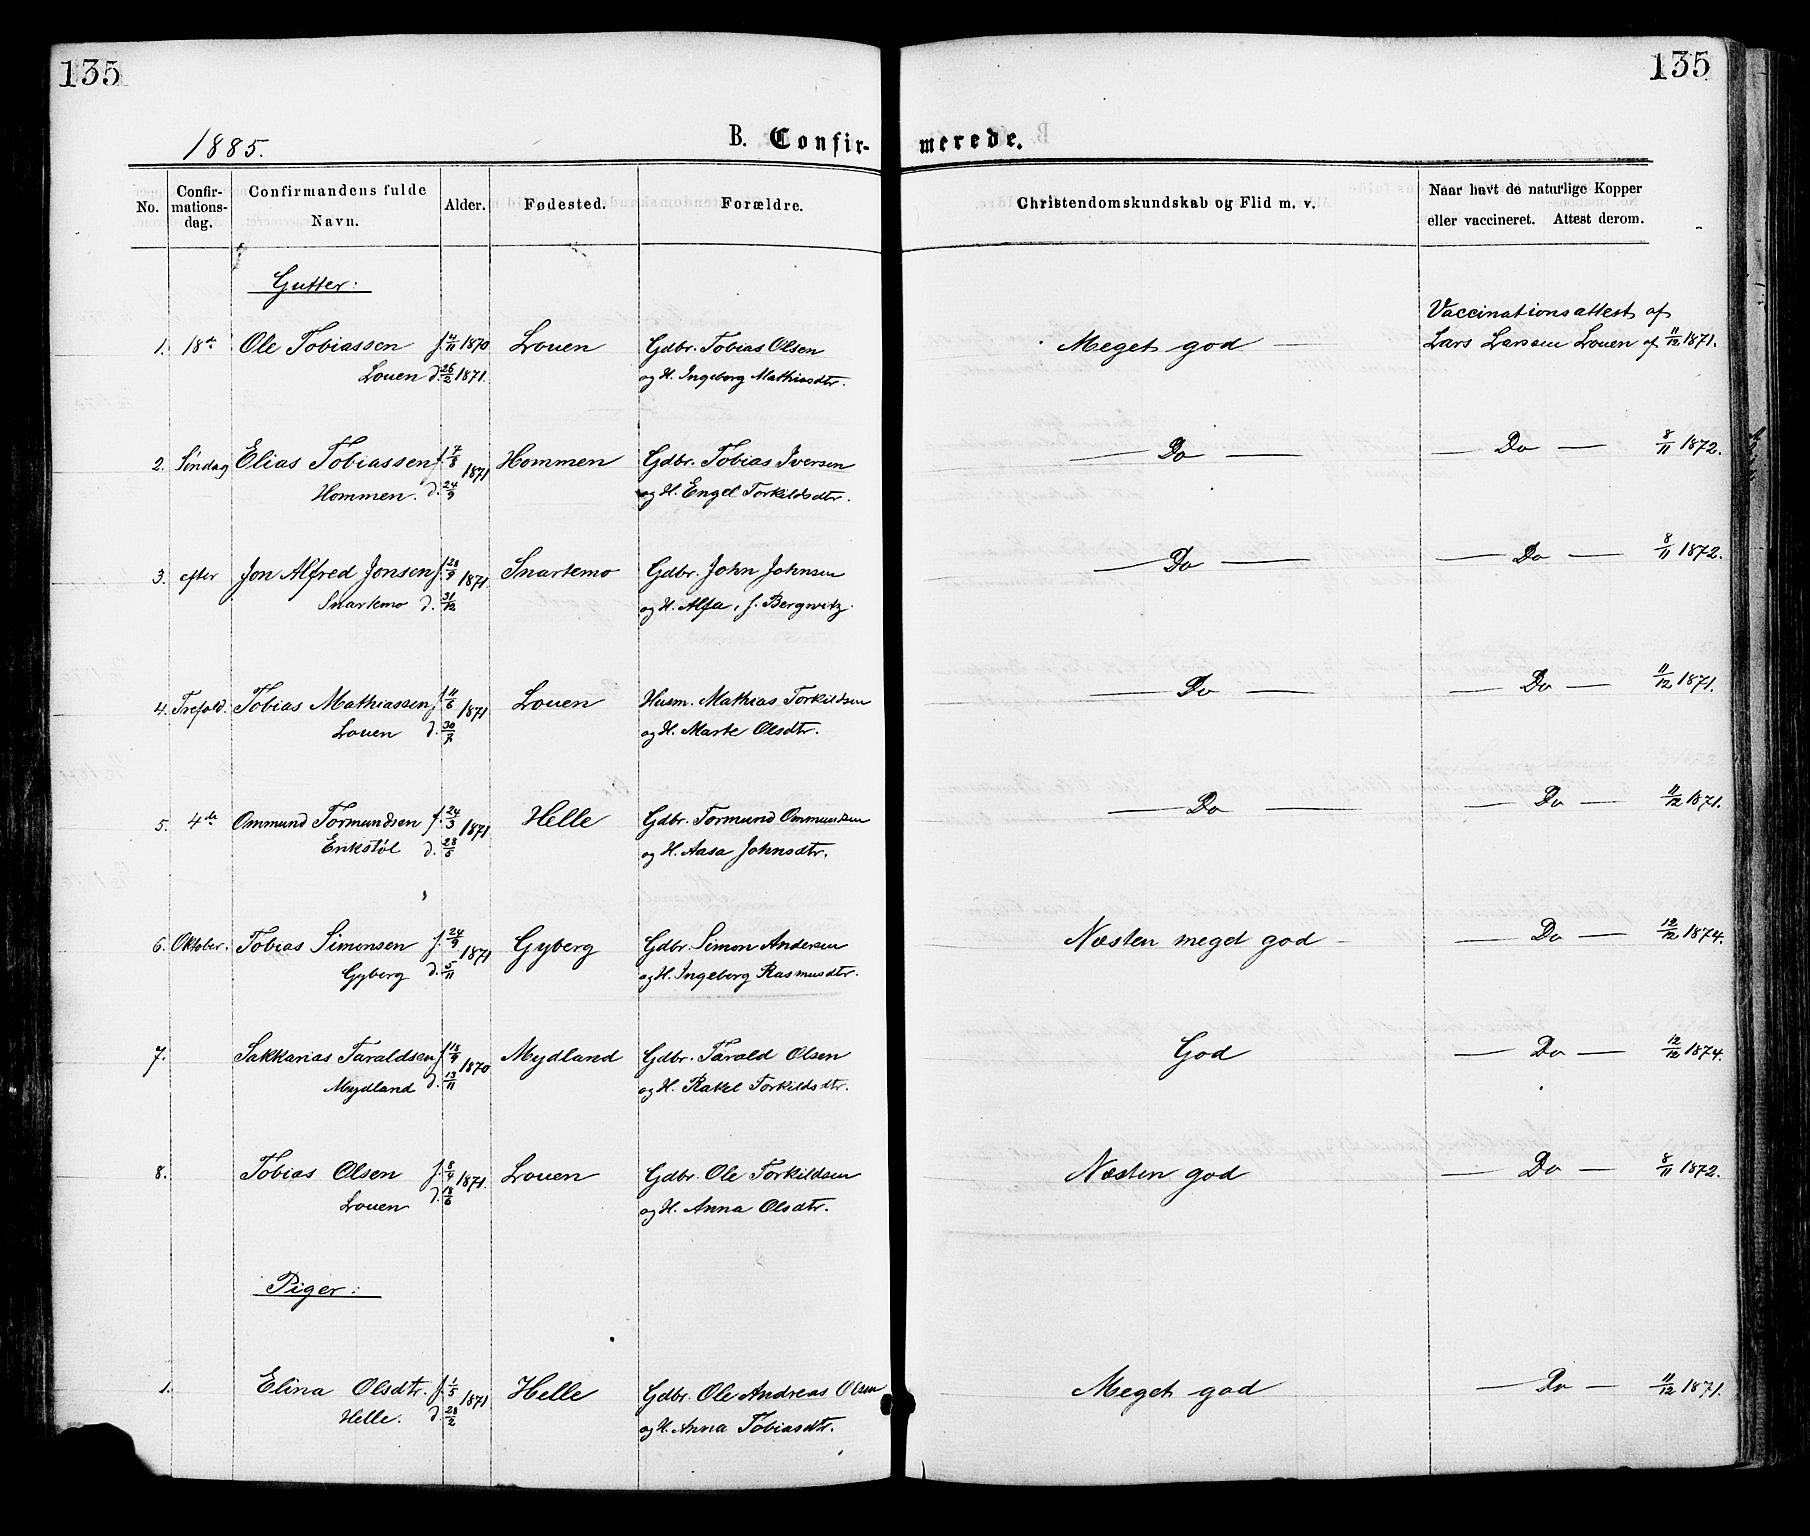 135
135
1885.
B. Confir-
merede.
No.
Confir-
mations-
dag.
Confirmandens fulde
Navn.
Alder.
Fødested.
Forældre.
Christendomskundskab og Flid m. v.
Naar havt de naturlige Kopper
eller vaccineret. Attest derom.
Gutter:
Vaccinationsattest af
1. 18de Ole Tobiassen f. 4/11 1870 Louen Gdbr. Tobias Olsen Meget god — Lars Larsen Louen af 11/12 1871.
Louen d. 26/2 1871. og H. Ingeborg Mathiasdtr.
2. Søndag Elias Tobiassen f. 7/8 1871 Hommen Gdbr. Tobias Iversen — Do — — Do — 8/11 1872.
Hommen. d. 24/9 og H. Engel Torkildsdtr.
3. efter Jon Alfred Jonsen f. 28/9 1871. Snartemo Gdbr. John Johnsen — Do — — Do — 8/11 1872.
Snartemo d. 31/12 og H. Alfa, f. Bergwitz.
4. Trefold. Tobias Mathiassen f. 11/6 1871 Louen Husm. Mathias Torkildsen — Do — — Do — 11/12 1871.
Louen d. 30/7 og H. Marte Olsdtr.
5. 4de Ommund Tormundsen f. 24/3 1871. Helle Gdbr. Tormund Ommundsen — Do — — Do — 11/12 1871.
Erikstøl d. 28/5 og H. Aasa Johnsdtr.
6. Oktober. Tobias Simonsen f. 24/9 1871 Gyberg Gdbr. Simon Andersen Næsten meget god — — Do — 12/12 1874.
Gyberg d. 5/11 og H. Ingeborg Rasmusdtr.
7. Sakkarias Taraldsen f. 18/9 1870 Mydland Gdbr. Tarald Olsen God — Do — 12/12 1874.
Mydland d. 13/11 og H. Rakel Torkildsdtr.
8. Tobias Olsen f. 8/4 1871. Louen Gdbr. Ole Torkildsen Næsten god — Do — 8/11 1872.
Louen d. 18/6 og H. Anna Olsdtr.
Piger:
1. Elina Olsdtr. f. 1/5 1871 Helle Gdbr. Ole Andreas Olsen Meget god — Do — 11/12 1871.
Helle. d. 28/2 og H. Anna Tobiasdtr.